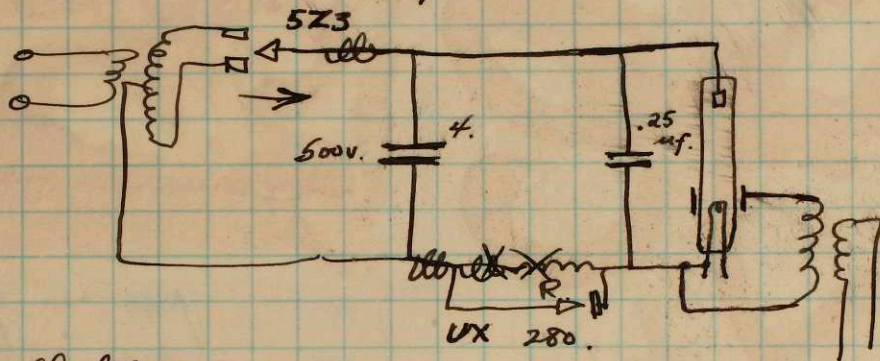 5Z3
500v.
4.
.25
µf.
R
UX 280.